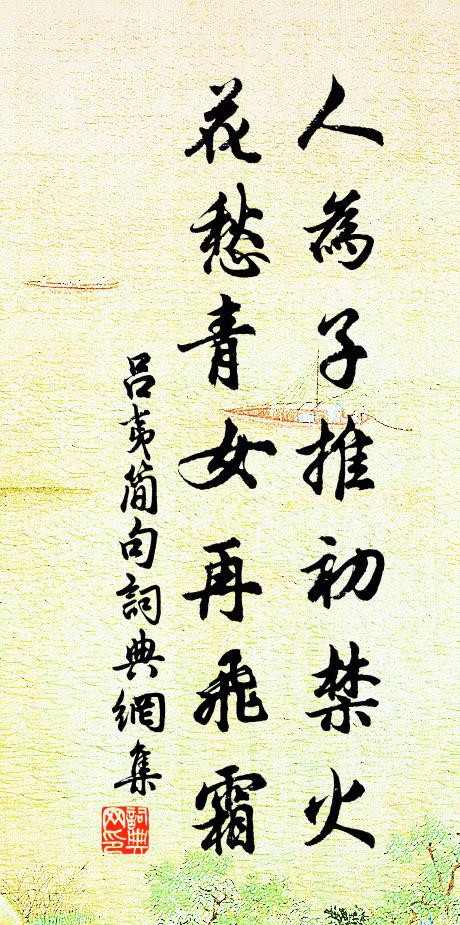 人為子推初禁火
花愁青女再飛霜
吕夷简句詞典網集
詞典网印